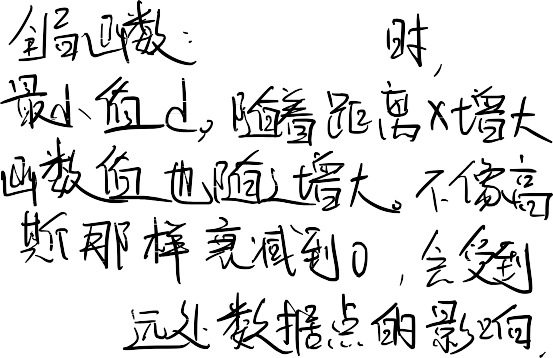 全局函数: 时,
最小值d,随着距离x增大
函数值也随之增大。不像高
斯那样衰减到0,会受到
远处数据点的影响.